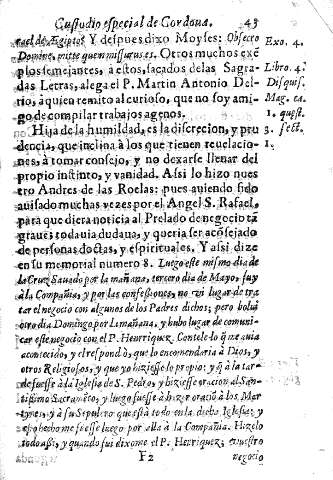 Custudio especial de Cordoua. 43
rael de Egipto? Y despues dixo Moyses: Obsecro Exo. 4.
Domine, mitte quem missurus es. Otros muchos exẽ
plos semejantes à estos, sacados de las Sagra- Libro. 4.
das Letras, alega el P. Martin Antonio Del- Disquis.
rio, à quien remito al curioso, que no soy ami- Mag. ca.
go de compilar trabajos agenos. 1. quęst.
Hija de la humildad, es la discrecion, y pru 3. sect.
dencia, que inclina à los que tienen reuelacio- 1.
nes, à tomar consejo, y no dexarse lleuar del
propio instinto, y vanidad. Assi lo hizo nues
tro Andres de las Roelas: pues auiendo sido
auisado muchas vezes por el Angel S. Rafael,
para que diera noticia al Prelado de negocio tã
graue; todauia dudaua, y queria ser acõsejado
de personas doctas, y espirituales. Y assi dize
en su memorial numero 8. Luego este mismo dia de
la Cruz Sauado por la mañana, tercero dia de Mayo, fuy
à la Compañia, y por las confessiones, no vi lugar de tra
tar el negocio con algunos de los Padres dichos; pero bolui
otro dia Domingo por la mañana, y hubo lugar de comuni-
car este negocio con el P. Henriquez. Contele lo q̃ me auia
acontecido, y el respondiò, que lo encomendaria à Dios, y
otros Religiosos, y que yo hiziesse lo propio: y q̃ à la tar-
de fuesse à la Iglesia de S. Pedro, y hiziesse oracion al San-
tissimo Sacramẽto, y luego fuesse à hizer oracion à los Mar-
tyres, y à su Sepulcro que està en la dicha Iglesia; y
esto hecho me fuesse luego por alla à la Compañia. Hizelo
todo assi, y quando fui dixome el P. Henriquez; nuestro
F2 negocio